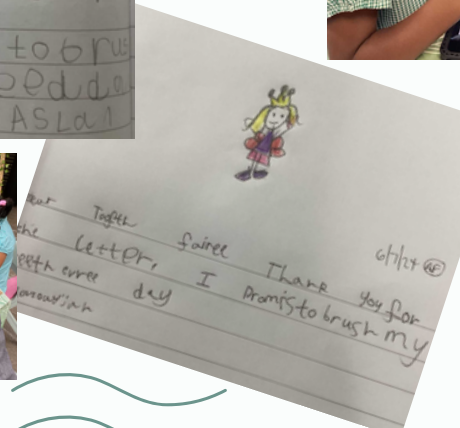 to brus
bedda
ASLaI
6/7/24 AF
ear Togfth fairee Thank you for
the Letter, I Promis to brush my
eeth evree day